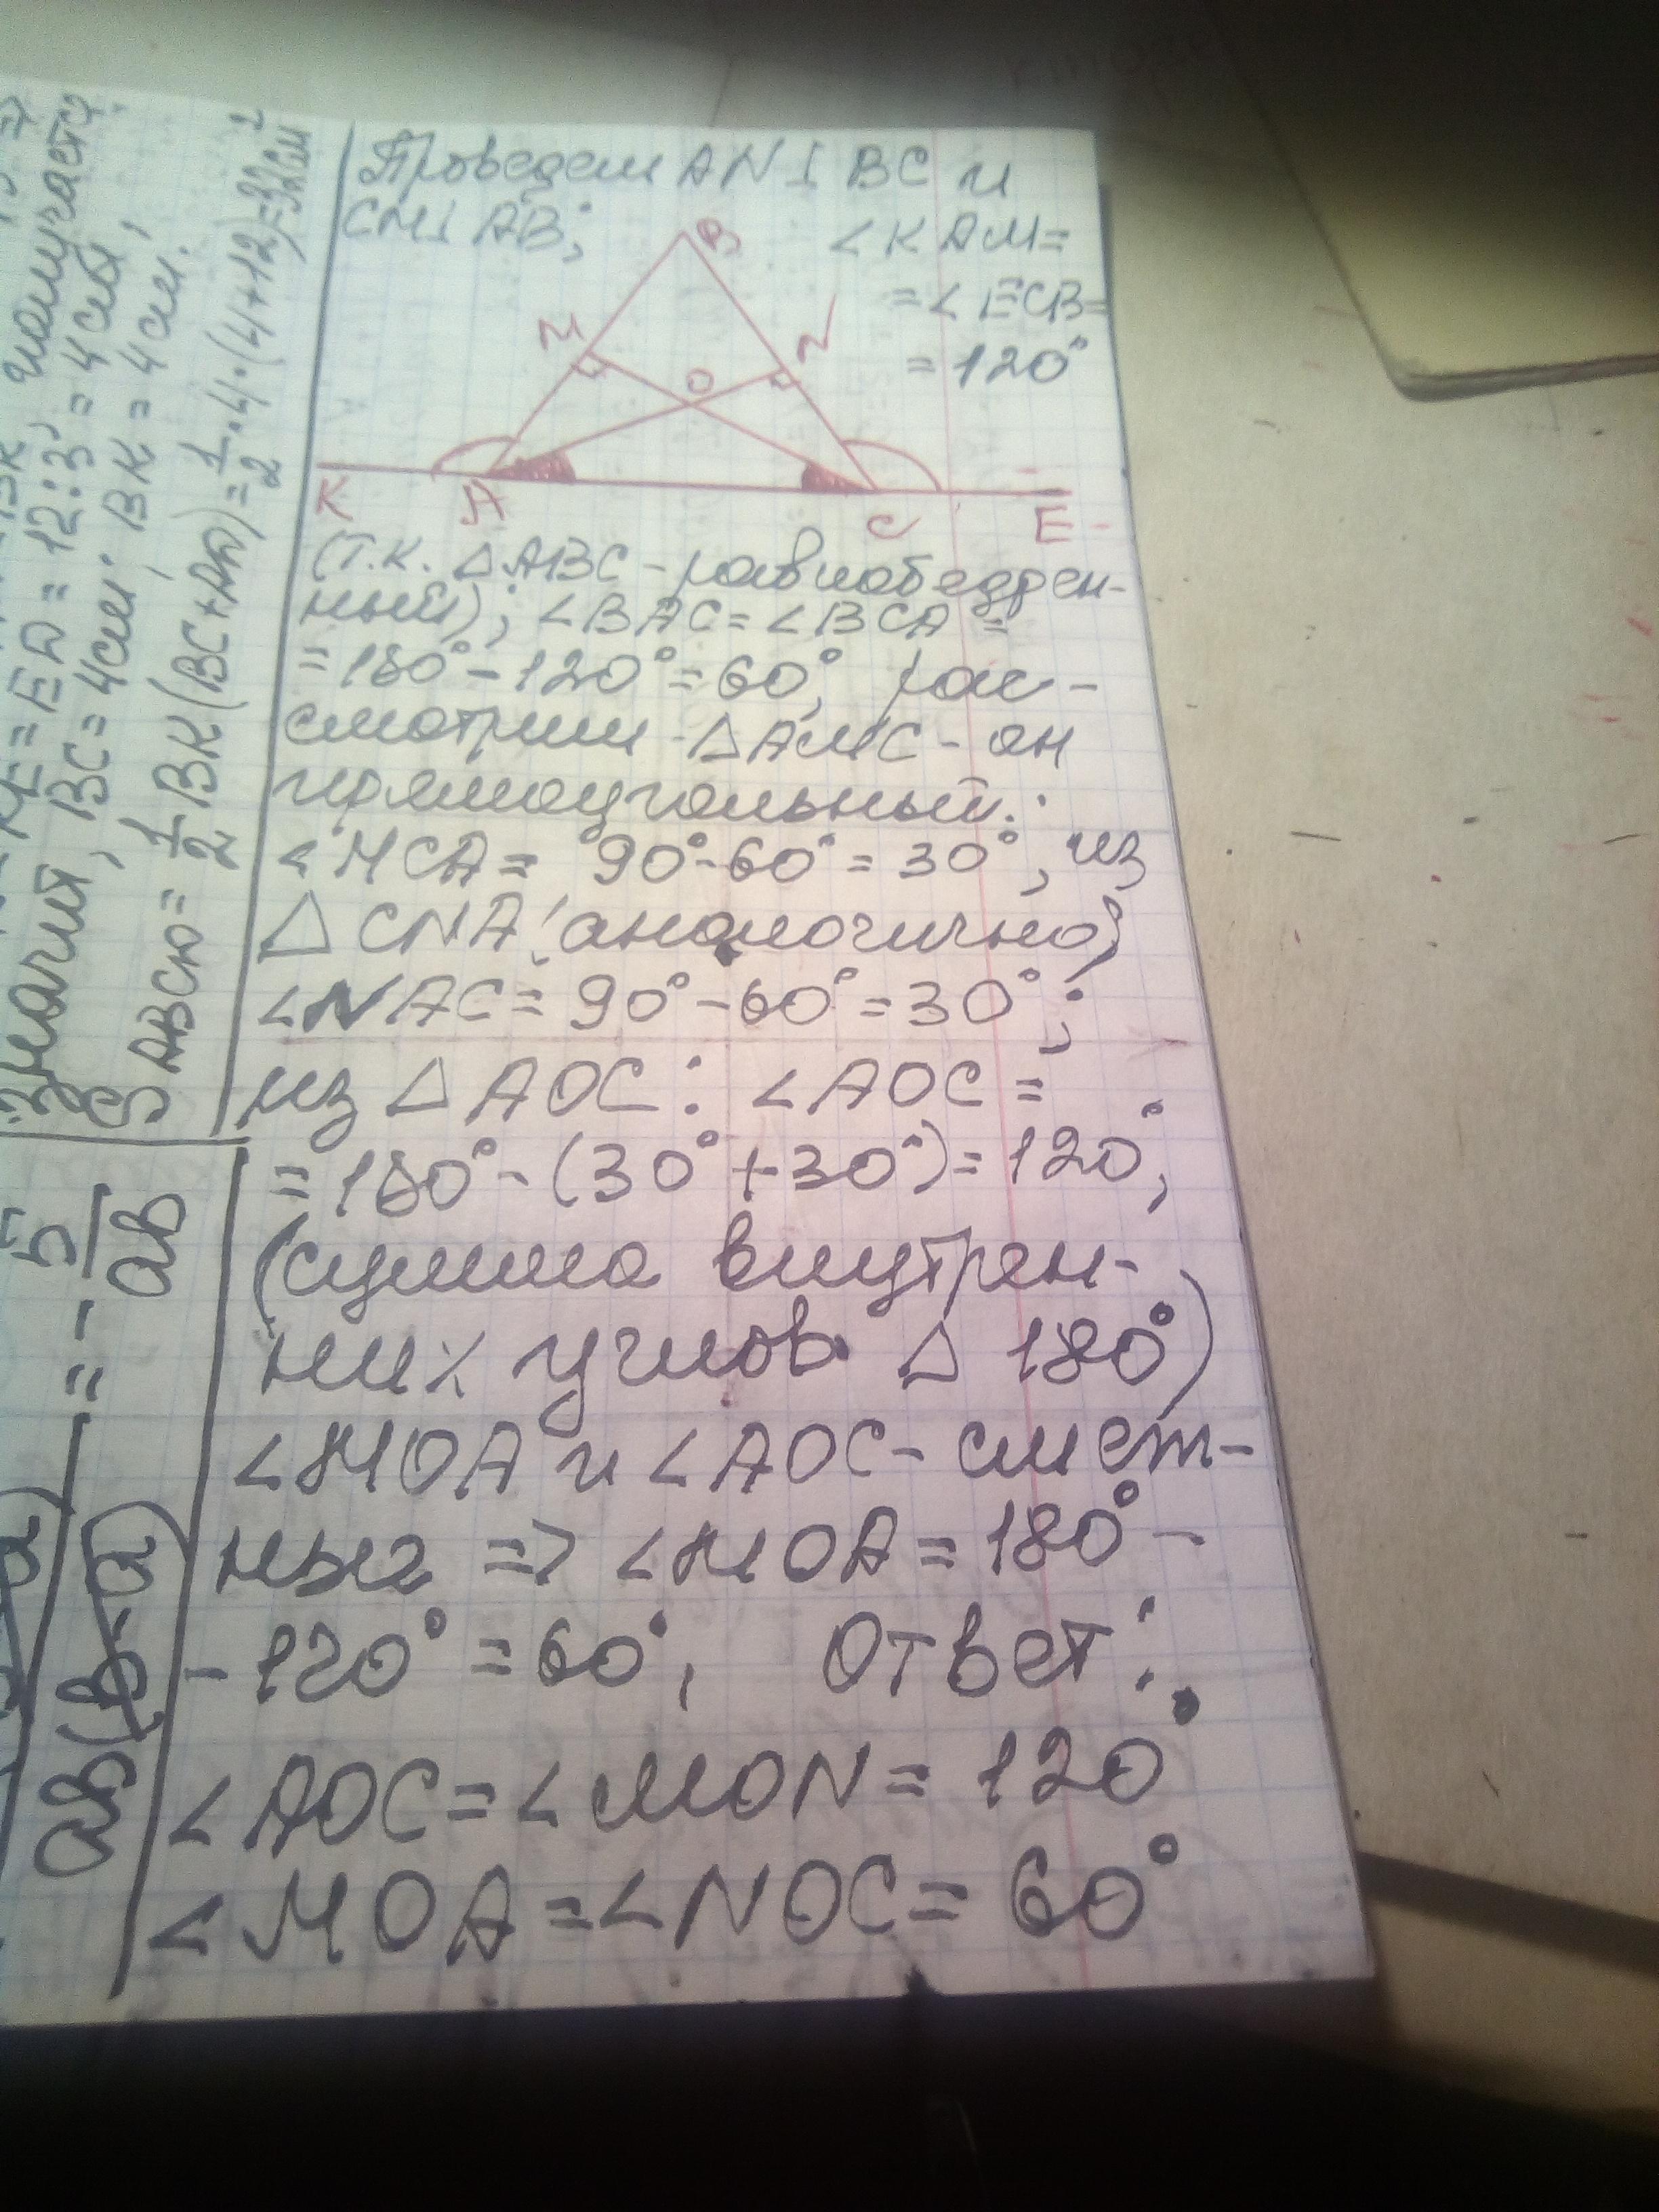 Проведем AN⊥ BC и
CM⊥ AB;
∠KAM=
=∠ECB=
=120°
B
M
N
O
K
A
C
E
(т.к. △ABC - равнобедрен-
ный); ∠BAC=∠BCA =
=180°-120°=60°, рас-
смотрим △AMC - он
прямоугольный:
∠MCA= 90°-60°=30°, из
△CNA (аналогично)
∠NAC= 90°-60°=30°;
из △AOC: ∠AOC=
=180°-(30°+30°)=120°,
(сумма внутрен-
них углов △ 180°)
∠MOA и ∠AOC- смеж-
ные => ∠MOA=180°-
-120°=60°, Ответ:
∠AOC=∠MON=120°
∠MOA=∠NOC=60°
=ED=12:3=4см,
Значит, BC=4см; BK=4см.
S ABCD=1/2 BK(BC+AD)=1/2·4·(4+12)=32см²
=-5/ab
ab(b-a)